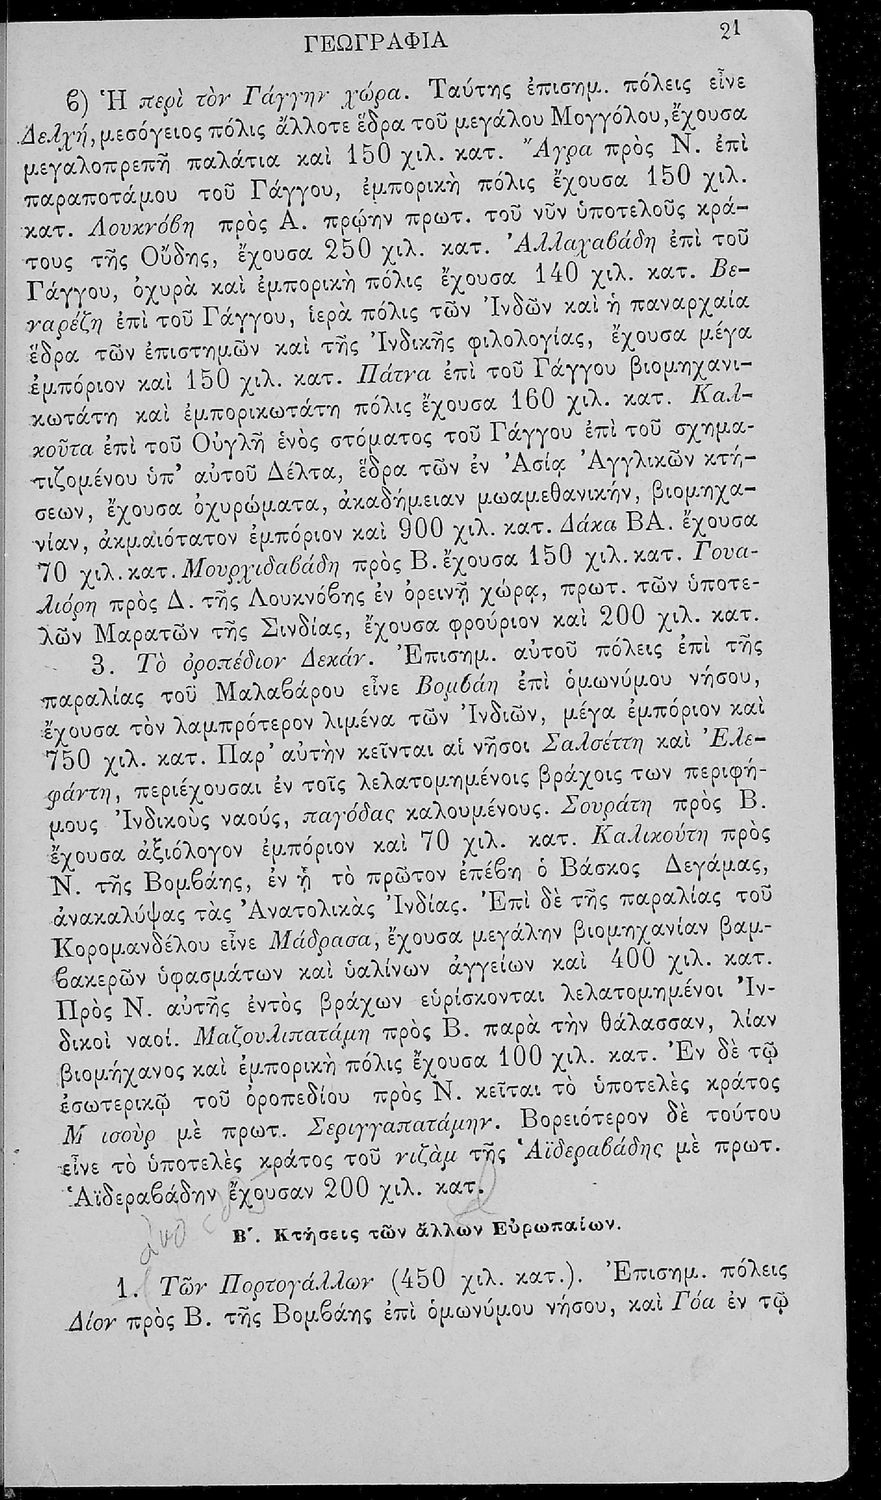 ΓΕΩΓΡΑΦΙΑ 21
β) Ἡ περὶ τὸν Γάγγην χώρα. Ταύτης ἐπισημ. πόλεις εἶνε
Δελχή, μεσόγειος πόλις ἄλλοτε ἕδρα τοῦ μεγάλου Μογγόλου, ἔχουσα
μεγαλοπρεπῆ παλάτια καὶ 150 χιλ. κατ. Ἄγρα πρὸς Ν. ἐπὶ
παραποτάμου τοῦ Γάγγου, ἐμπορικὴ πόλις ἔχουσα 150 χιλ.
κατ. Λουκνόβη πρὸς Α. πρῴην πρωτ. τοῦ νῦν ὑποτελοῦς κρά-
τους τῆς Οὔδης, ἔχουσα 250 χιλ. κατ. Ἀλλαχαβάδη ἐπὶ τοῦ
Γάγγου, ὀχυρὰ καὶ ἐμπορικὴ πόλις ἔχουσα 140 χιλ. κατ. Βε-
ναρέζη ἐπὶ τοῦ Γάγγου, ἱερὰ πόλις τῶν Ἰνδῶν καὶ ἡ παναρχαία
ἕδρα τῶν ἐπιστημῶν καὶ τῆς Ἰνδικῆς φιλολογίας, ἔχουσα μέγα
ἐμπόριον καὶ 150 χιλ. κατ. Πάτνα ἐπὶ τοῦ Γάγγου βιομηχανι-
κωτάτη καὶ ἐμπορικωτάτη πόλις ἔχουσα 160 χιλ. κατ. Καλ-
κοῦτα ἐπὶ τοῦ Οὐγλῆ ἑνὸς στόματος τοῦ Γάγγου ἐπὶ τοῦ σχημα-
τιζομένου ὑπ' αὐτοῦ Δέλτα, ἕδρα τῶν ἐν Ἀσίᾳ Ἀγγλικῶν κτή-
σεων, ἔχουσα ὀχυρώματα, ἀκαδήμειαν μωαμεθανικήν, βιομηχα-
νίαν, ἀκμαιότατον ἐμπόριον καὶ 900 χιλ. κατ. Δάκα ΒΑ. ἔχουσα
70 χιλ. κατ. Μουρχιδαβάδη πρὸς Β. ἔχουσα 150 χιλ. κατ. Γουα-
λιόρη πρὸς Δ. τῆς Λουκνόβης ἐν ὀρεινῇ χώρᾳ, πρωτ. τῶν ὑποτε-
λῶν Μαρατῶν τῆς Σινδίας, ἔχουσα φρούριον καὶ 200 χιλ. κατ.
3. Τὸ ὀροπέδιον Δεκάν. Ἐπισημ. αὐτοῦ πόλεις ἐπὶ τῆς
παραλίας τοῦ Μαλαβάρου εἶνε Βομβάη ἐπὶ ὁμωνύμου νήσου,
ἔχουσα τὸν λαμπρότερον λιμένα τῶν Ἰνδιῶν, μέγα ἐμπόριον καὶ
750 χιλ. κατ. Παρ' αὐτὴν κεῖνται αἱ νῆσοι Σαλσέττη καὶ Ἐλε-
φάντη, περιέχουσαι ἐν τοῖς λελατομημένοις βράχοις των περιφή-
μους Ἰνδικοὺς ναούς, παγόδας καλουμένους. Σουράτη πρὸς Β.
ἔχουσα ἀξιόλογον ἐμπόριον καὶ 70 χιλ. κατ. Καλικούτη πρὸς
Ν. τῆς Βομβάης, ἐν ᾗ τὸ πρῶτον ἐπέβη ὁ Βάσκος Δεγάμας,
ἀνακαλύψας τὰς Ἀνατολικὰς Ἰνδίας. Ἐπὶ δὲ τῆς παραλίας τοῦ
Κορομανδέλου εἶνε Μάδρασα, ἔχουσα μεγάλην βιομηχανίαν βαμ-
βακερῶν ὑφασμάτων καὶ ὑαλίνων ἀγγείων καὶ 400 χιλ. κατ.
Πρὸς Ν. αὐτῆς ἐντὸς βράχων εὑρίσκονται λελατομημένοι Ἰν-
δικοὶ ναοί. Μαζουλιπατάμη πρὸς Β. παρὰ τὴν θάλασσαν, λίαν
βιομήχανος καὶ ἐμπορικὴ πόλις ἔχουσα 100 χιλ. κατ. Ἐν δὲ τῷ
ἐσωτερικῷ τοῦ ὀροπεδίου πρὸς Ν. κεῖται τὸ ὑποτελὲς κράτος
Μ ισοὺρ μὲ πρωτ. Σεριγγαπατάμην. Βορειότερον δὲ τούτου
εἶνε τὸ ὑποτελὲς κράτος τοῦ νιζὰμ τῆς Ἁϊδεραβάδης μὲ πρωτ.
Ἁϊδεραβάδην ἔχουσαν 200 χιλ. κατ.
Β΄. Κτήσεις τῶν ἄλλων Εὐρωπαίων.
1. Τῶν Πορτογάλλων (450 χιλ. κατ.). Ἐπισημ. πόλεις
Δίον πρὸς Β. τῆς Βομβάης ἐπὶ ὁμωνύμου νήσου, καὶ Γόα ἐν τῷ